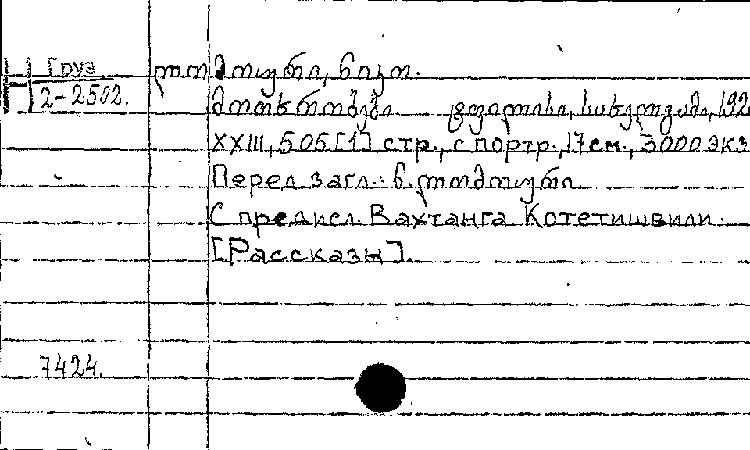 Груз
2-2502.
ლომოური, ნიკო.
მოთხრობები. ტფილისი, სახელგამი, 192
XXIII, 505 [1] стр., с портр., 17 см., 3000 экз
Перед загл.: ნ. ლომოური
С предисл. Вахтанга Котетишвили.
[Рассказы].
7424.